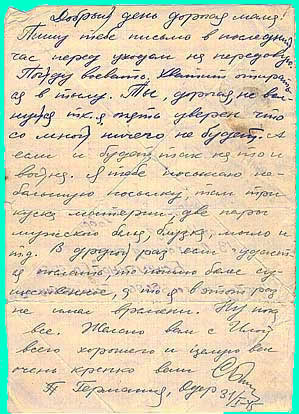 Добрый день дорогая мама!
Пишу тебе письмо в последний
час перед уходом на передовую.
Пойду воевать. Хватит
ся в тылу. Ты, дорогая, не вол-
нуйся т.к. я опять уверен что
со мной ничего не будет. А
если и будет так на то и
война. Я тебе посылаю не-
большую посылку, там три
куска материи, две пары
мужского белья, блузка, мыло и
т.д. В другой раз если удастся
я вышлю что-нибудь более су-
щественное, а то я в этот раз
не имел времени. Ну пока
все. Желаю вам с
всего хорошего и целую вас
очень крепко ваш
Германия, Одер 31/I-45